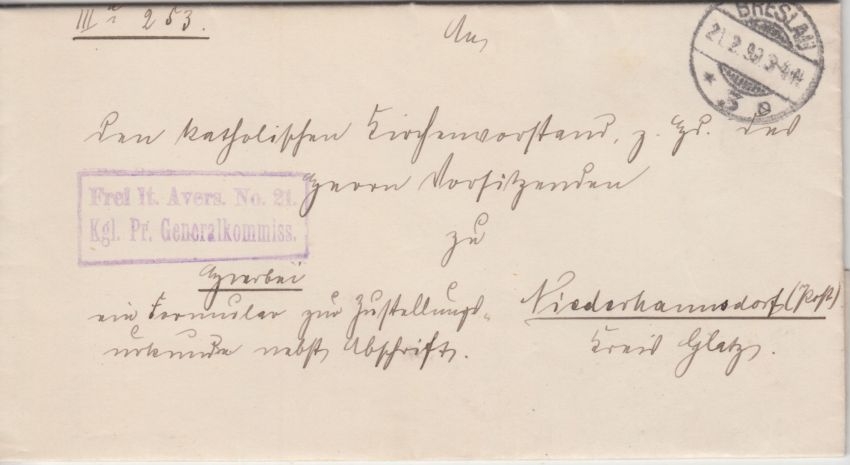 III a i 253.
An
BRESLAU
21.2.99.3-4N
* 3 e
den katholischen Kirchenvorstand, z. Hd. des
Herrn Vorsitzenden
Frei lt. Avers. No. 21.
Kgl. Pr. Generalkommiss.
zu
Hierbei
ein Formular zur Zustellungs-
urkunde nebst Abschrift.
Niederhannsdorf (Post)
Kreis Glatz.